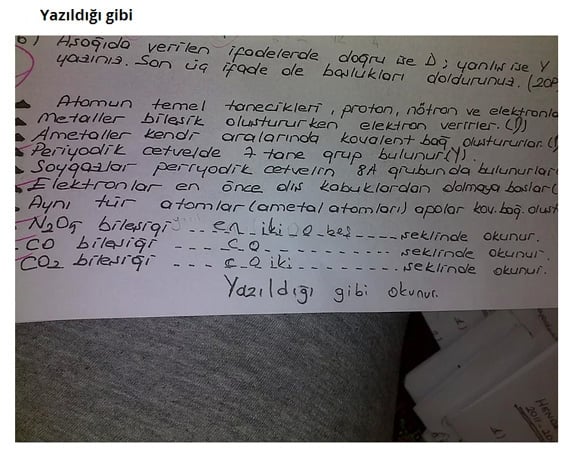 Yazıldığı gibi
6) Aşağıda verilen ifadelerde doğru ise D; yanlış ise Y
yazınız. Son üç ifade de boşlukları doldurunuz. (20P
Atomun temel tanecikleri, proton, nötron ve elektronla
Metaller bileşik oluştururken elektron verirler. (D)
Ametaller kendi aralarında kovalent bağ oluştururlar. (
Periyodik cetvelde 7 tane grup bulunur. (Y).
Soygazlar periyodik cetvelin 8A grubunda bulunurlar (
Elektronlar en önce dış kabuklardan dolmaya başlar (
Aynı tür atomlar (ametal atomları) apolar kov. bağ. oluşt
N₂O₅ bileşiği .. en iki o beş ---- şeklinde okunur.
CO bileşiği --- c o ------- şeklinde okunur.
CO₂ bileşiği --- c o iki ----- şeklinde okunur.
Yazıldığı gibi okunur.